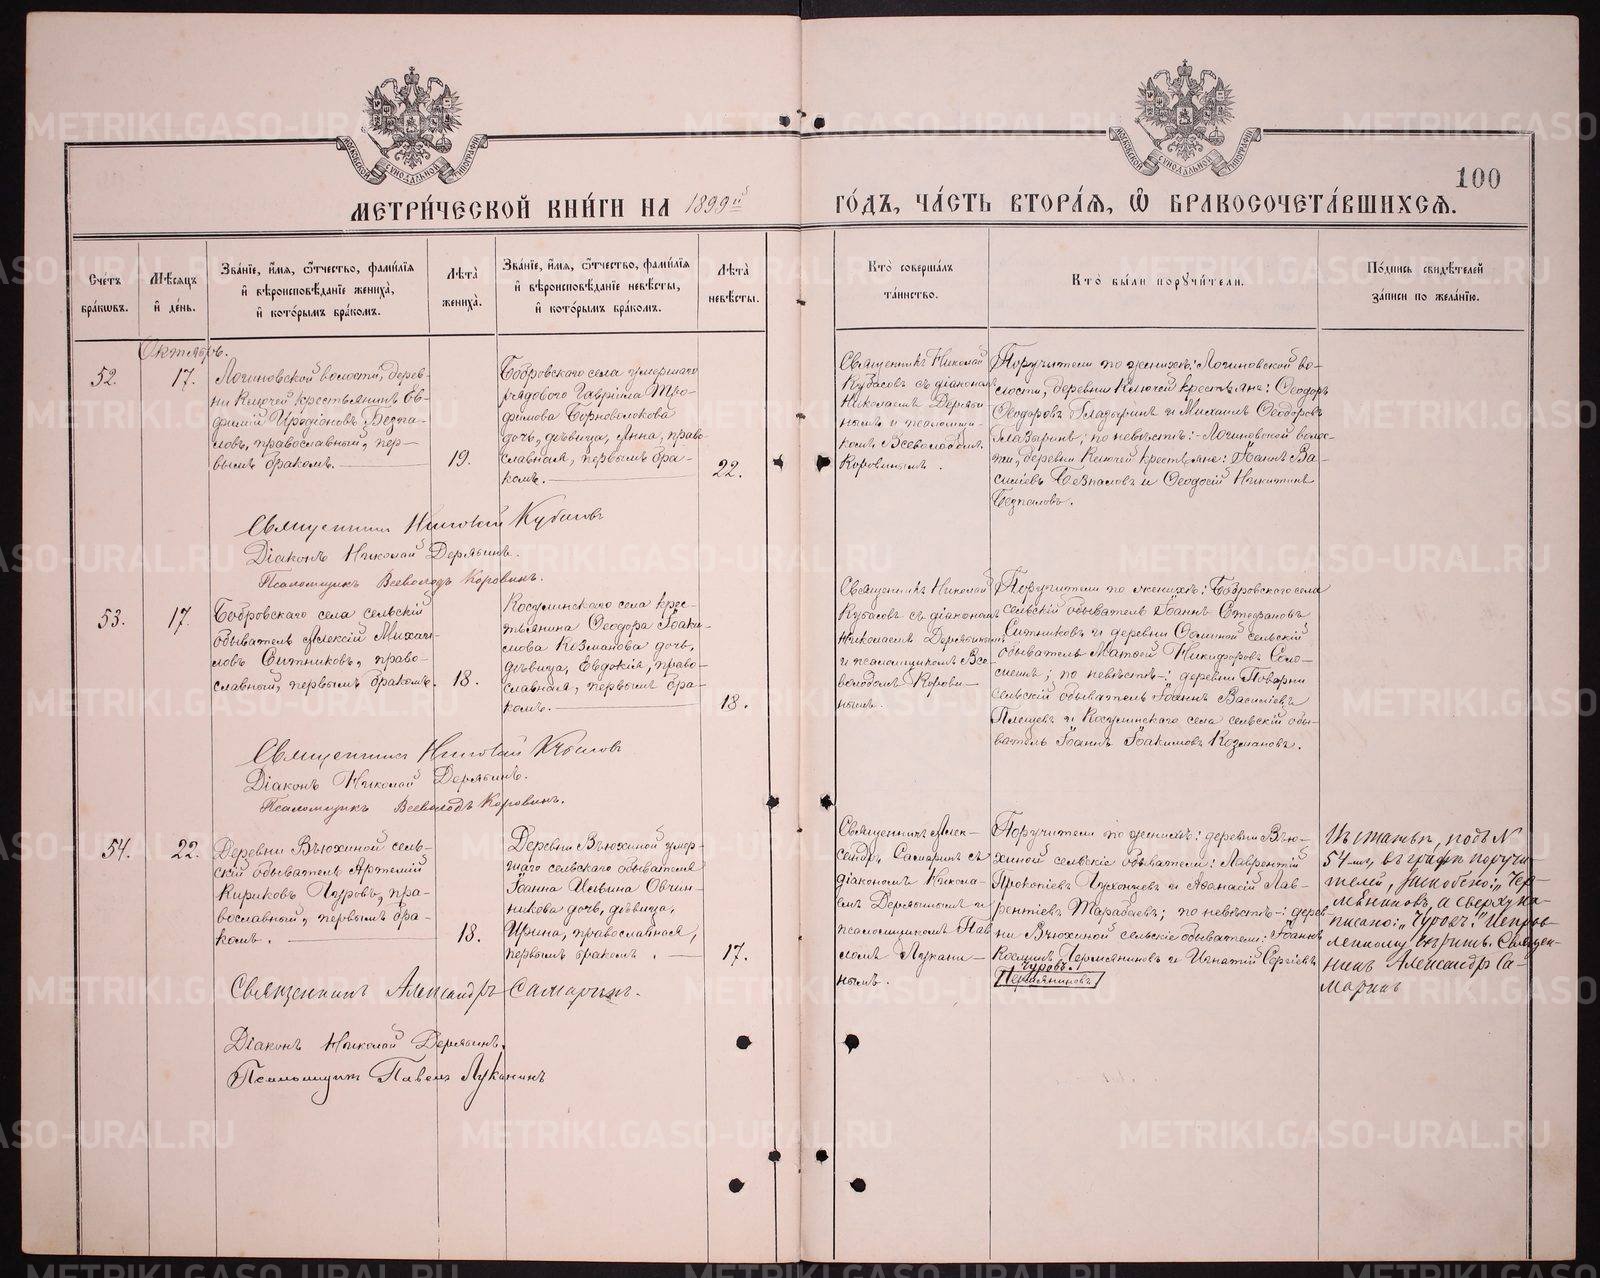 МОСКОВСКОЙ СѴНОДАЛЬНОЙ ТИПОГРАФІИ
МОСКОВСКОЙ СѴНОДАЛЬНОЙ ТИПОГРАФІИ
100
МЕТРИ́ЧЕСКОЙ КНИ́ГИ НА 1899й
ГО́ДЪ, ЧА́СТЬ ВТОРА́Я, Ѡ҆ БРАКОСОЧЕТА́ВШИХСѦ.
Сче́тъ
бра́кѡвъ.
Мѣ́сѧцъ
и҆ де́нь.
Зва́нїе, и҆́мѧ, ѻ҆́тчество, фами́лїѧ
и҆ вѣроисповѣ́данїе жениха̀,
и҆ кото́рымъ бра́комъ.
Лѣ́та̀
жениха̀.
Зва́нїе, и҆́мѧ, ѻ҆́тчество, фами́лїѧ
и҆ вѣроисповѣ́данїе невѣ́сты,
и҆ кото́рымъ бра́комъ.
Лѣ́та̀
невѣ́сты.
Кто̀ соверша́лъ
та́инство.
Кто̀ бы́ли порꙋчи́тели.
По́дпись свидѣ́телей
за́писи по жела́нїю.
Октябрь.
52.
17.
Логиновской волости, дерев-
ни Ключей крестьянинъ Ев-
фимій Иродіоновъ Безпа-
ловъ, православный, пер-
вымъ бракомъ.
19.
Бобровскаго села умершаго
рядового Гавріила Тро-
фимова Борноволокова
дочь, дѣвица, Анна, право-
славная, первымъ бра-
комъ.
22.
Священникъ Николай
Кубасовъ съ діакономъ
Николаемъ Дерябинымъ и псаломщи-
комъ Всеволодомъ
Коровинымъ.
Поручители по женихѣ: Логиновской во-
лости, деревни Ключей крестьяне: Ѳеодоръ
Ѳеодоровъ Глазыринъ и Михаилъ Ѳеодоровъ
Глазыринъ; по невѣстѣ:- Логиновской волос-
ти, деревни Ключей крестьяне: Іоаннъ Ва-
силіевъ Безпаловъ и Ѳеодосій Никитинъ
Безпаловъ.
Священникъ Николай Кубасовъ
Діаконъ Николай Дерябинъ.
Псаломщикъ Всеволодъ Коровинъ.
53.
17.
Бобровскаго села сельскій
обыватель Алексій Михаи-
ловъ Ситниковъ, право-
славный, первымъ бракомъ.
18.
Косулинскаго села крес-
тьянина Ѳеодора Іоаки-
мова Козманова дочь,
дѣвица, Евдокія, право-
славная, первымъ бра-
комъ.
18.
Священникъ Николай
Кубасовъ съ діакономъ
Николаемъ Дерябинымъ
и псаломщикомъ Все-
володомъ Корови-
нымъ.
Поручители по женихѣ: Бобровскаго села
сельскій обыватель Іоаннъ Стефановъ
Ситниковъ и деревни сельскій
обыватель Матѳей Никифоровъ
по невѣстѣ:- деревни Поварни
сельскій обыватель Іоаннъ Василіевъ
Плещевъ и Косулинскаго села сельскій обы-
ватель Іоаннъ Іоакимовъ Козмановъ.
Священникъ Николай Кубасовъ
Діаконъ Николай Дерябинъ.
Псаломщикъ Всеволодъ Коровинъ.
54.
22.
Деревни Вьюхиной сель-
скій обыватель Артемій
Кириковъ Чуровъ, пра-
вославный, первымъ бра-
комъ.
18.
Деревни Вьюхиной умер-
шаго сельскаго обывателя
Іоанна Ильина Овчин-
никова дочь, дѣвица,
Ирина, православная,
первымъ бракомъ.
17.
Священникъ Алек-
сандръ Самаринъ съ
діакономъ Никола-
емъ Дерябинымъ и
псаломщикомъ Пав-
ломъ Лукани-
нымъ.
Поручители по женихѣ: деревни Вью-
хиной сельскіе обыватели: Лаврентій
Прокопіевъ и Аѳанасій Лав-
рентіевъ Тарабаевъ; по невѣстѣ:- дерев-
ни Вьюхиной сельскіе обыватели: Іоаннъ
Космин Пермяниковъ и Игнатій Сергіевъ
Чуровъ.
Пермяниковъ
Въ статьѣ, подъ №
54-мъ, въ графѣ поручи-
телей, зскоблено: „Пер-
мяниковъ, а сверху на-
писано: „Чуровъ." Исправ-
ленному вѣрить. Священ-
никъ Александръ Са-
маринъ
Священникъ Александръ Самаринъ.
Діаконъ Николай Дерябинъ.
Псаломщикъ Павелъ Луканинъ
METRIKI.GASO-URAL.RU